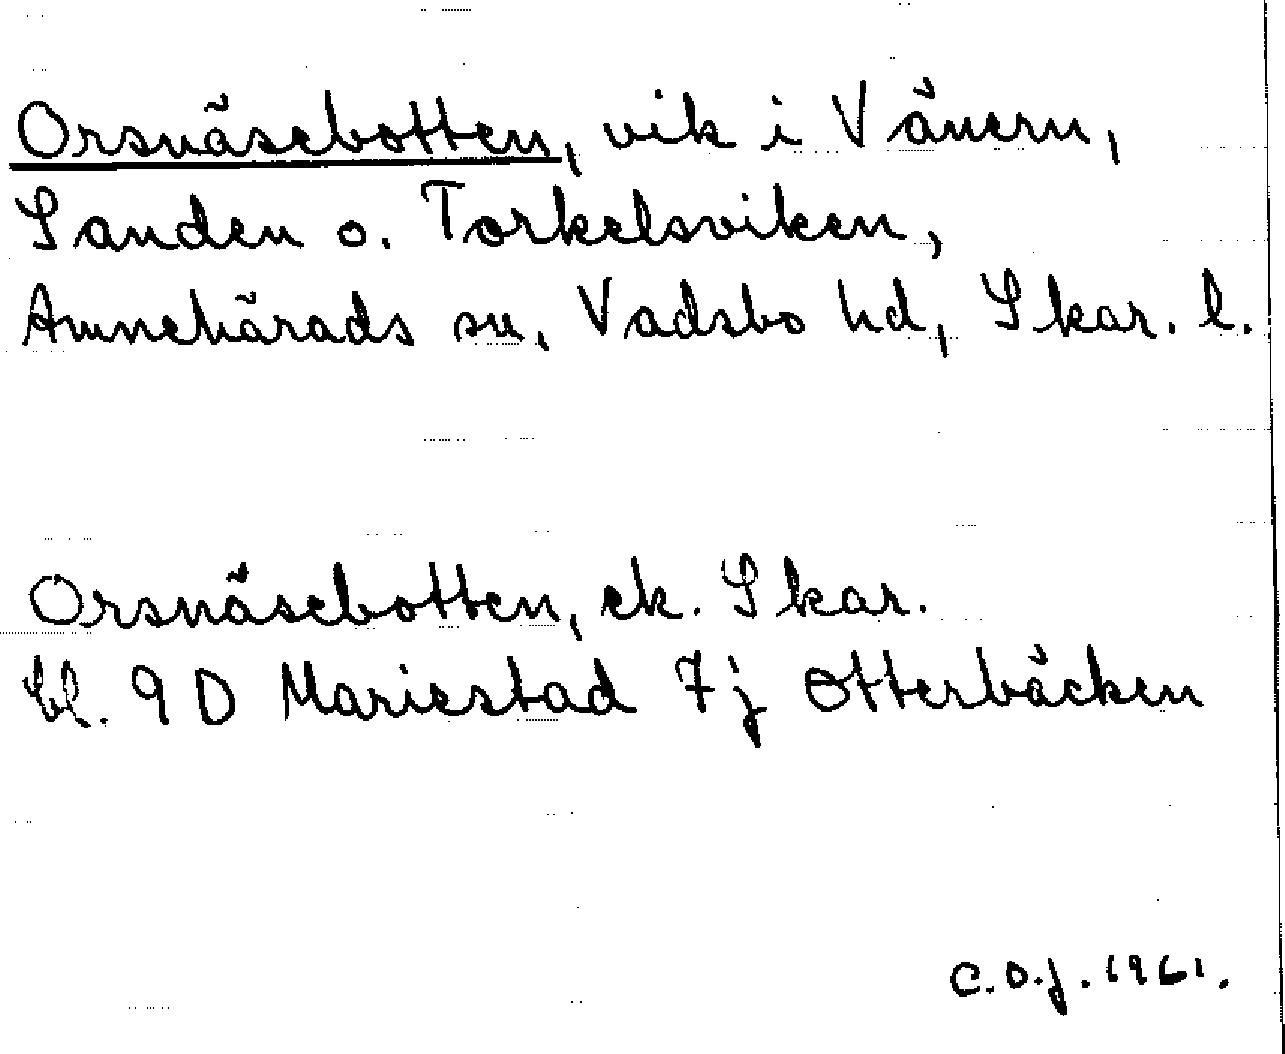 Orsnäsebotten, vik i Vänern,
Sanden o. Torkelsviken,
Amnehärads sn, Vadsbo hd, Skar. l.
Orsnäsebotten, ek. Skar.
bl. 9 D Mariestad 7j Otterbäcken
C.O.J. 1961.